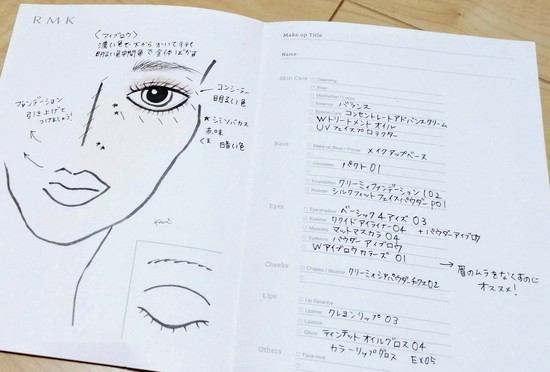 RMK
〈アイブロウ〉
濃い色で下からかいて
明るい中間色で全体ぼかす
コンシーラー
明るい色
ファンデーション
引き上げて
つけましょう!
★シミソバカス
赤味
くま
暗い色
Make-up Title
Name
Skin Care
Cleansing
バランス
コンセントレートアドバンスクリーム
Wトリートメントオイル
UVフェイスプロテクター
Base
メイクアップベース
Concealer
パクト01
Foundation クリーミィファンデーション102
Powder シルクフィットフェイスパウダーP01
Eyes
Eye shadow ベーシック4アイズ03
Eyeliner リクイドアイライナー04 +パウダーアイブロウ
Mascara マットマスカラ04
Eyebrow パウダーアイブロウ
Wアイブロウカラーズ01
→眉のムラをなくすのに
オススメ!
Cheeks
Cheeks / Blusher クリーミィシアーパウダーチークス02
Lips
Lip Essence
Lipliner クレヨンリップ03
Lipstick
Gloss ティンテッドオイルグロス04
カラーリップグロス EX05
Others
Face mist